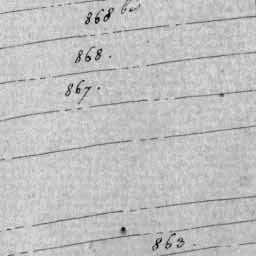 868 bis
868.
867.
863.